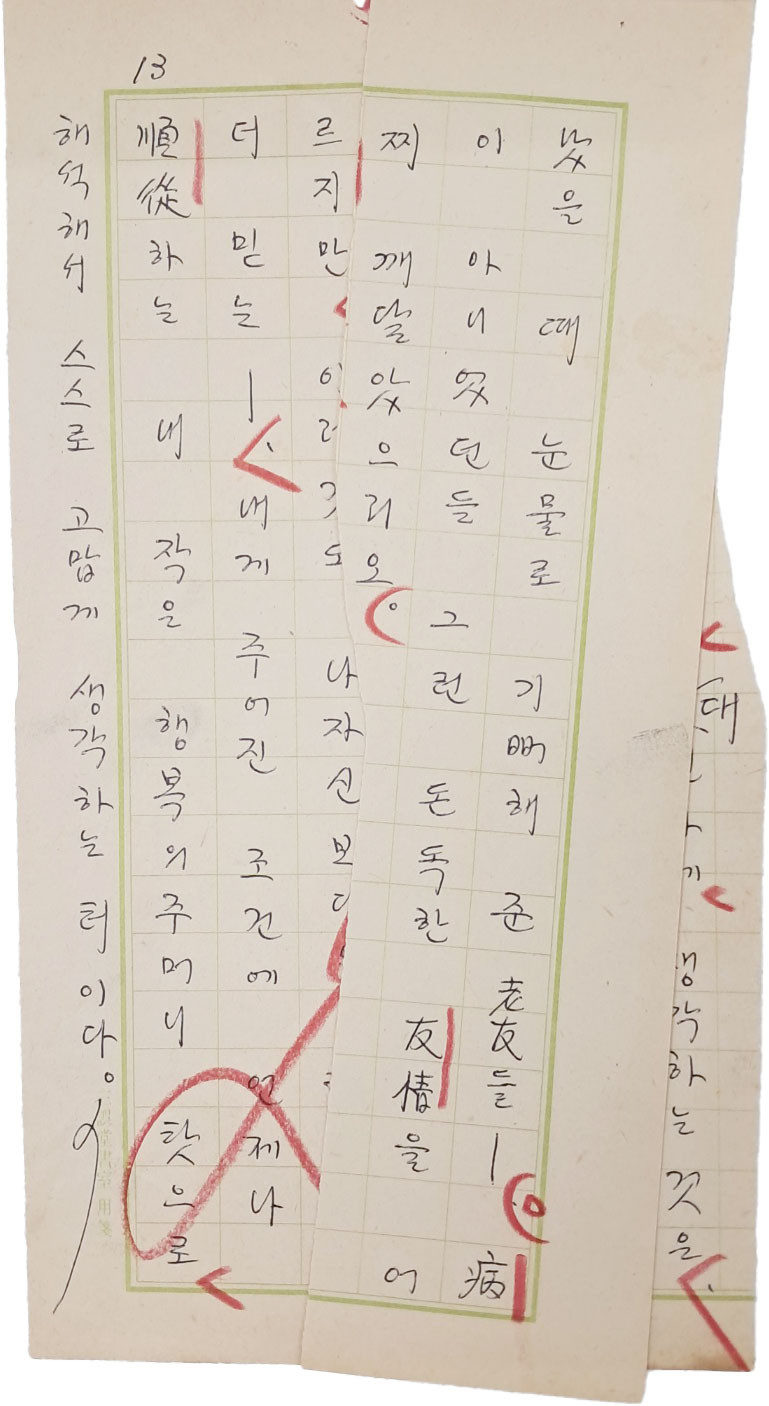 생각하는 것은
낫을 때 눈물로 기뻐해 준 老友들— 病
이 아니었던들 그런 돈독한 友情을 어
찌 깨달았으리오.
13
르지만 나 자신 보다
더 믿는— 내게 주어진 조건에 언제나
順從하는 내 작은 행복의 주머니 탓으로
해석해서 스스로 고맙게 생각하는 터이다.